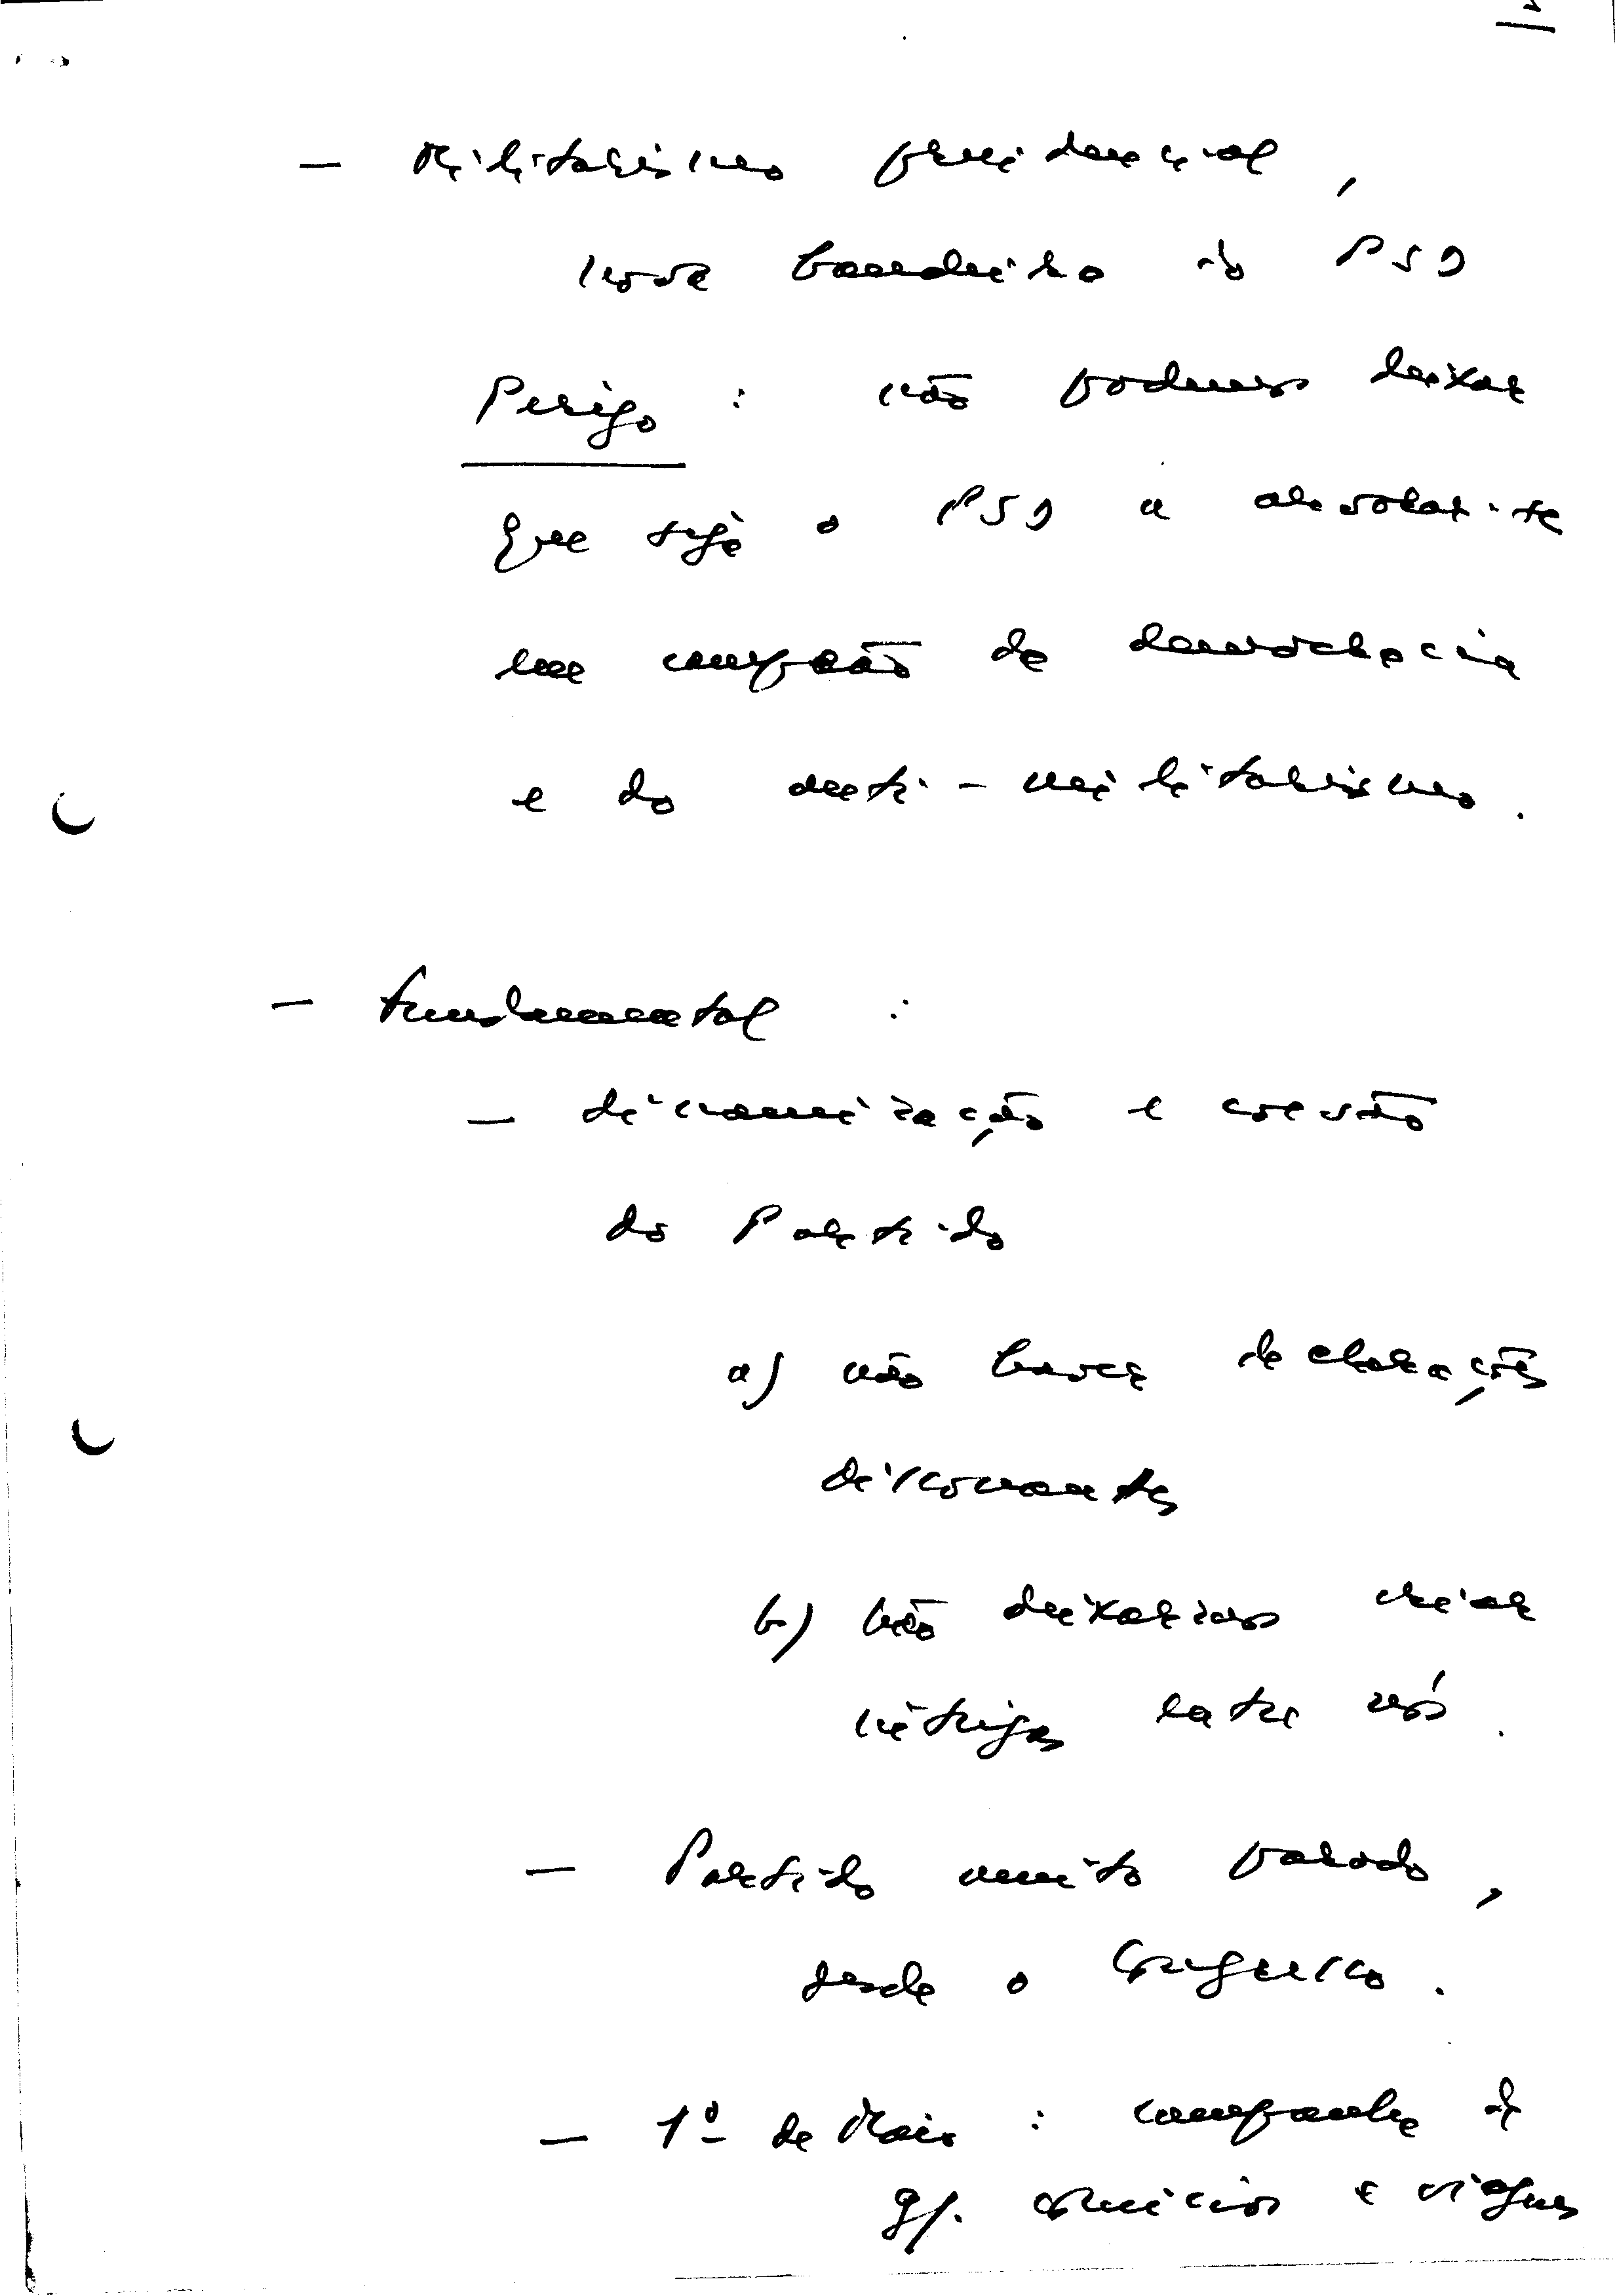 — Militarismo presidencial,
nova bandeira do PSD
Perigo : não podemos deixar
que seja o PSD a arvorar-se
em campeão da democracia
e do anti-militarismo.
— Fundamental :
— dinamização e coesão
do Partido
a) não haver declarações
disconantes
b) não deixarmos criar
intrigas entre nós.
— Partido muito parado,
desde o Congresso.
— 1º de Maio : campanha de
gr. comícios e viagens